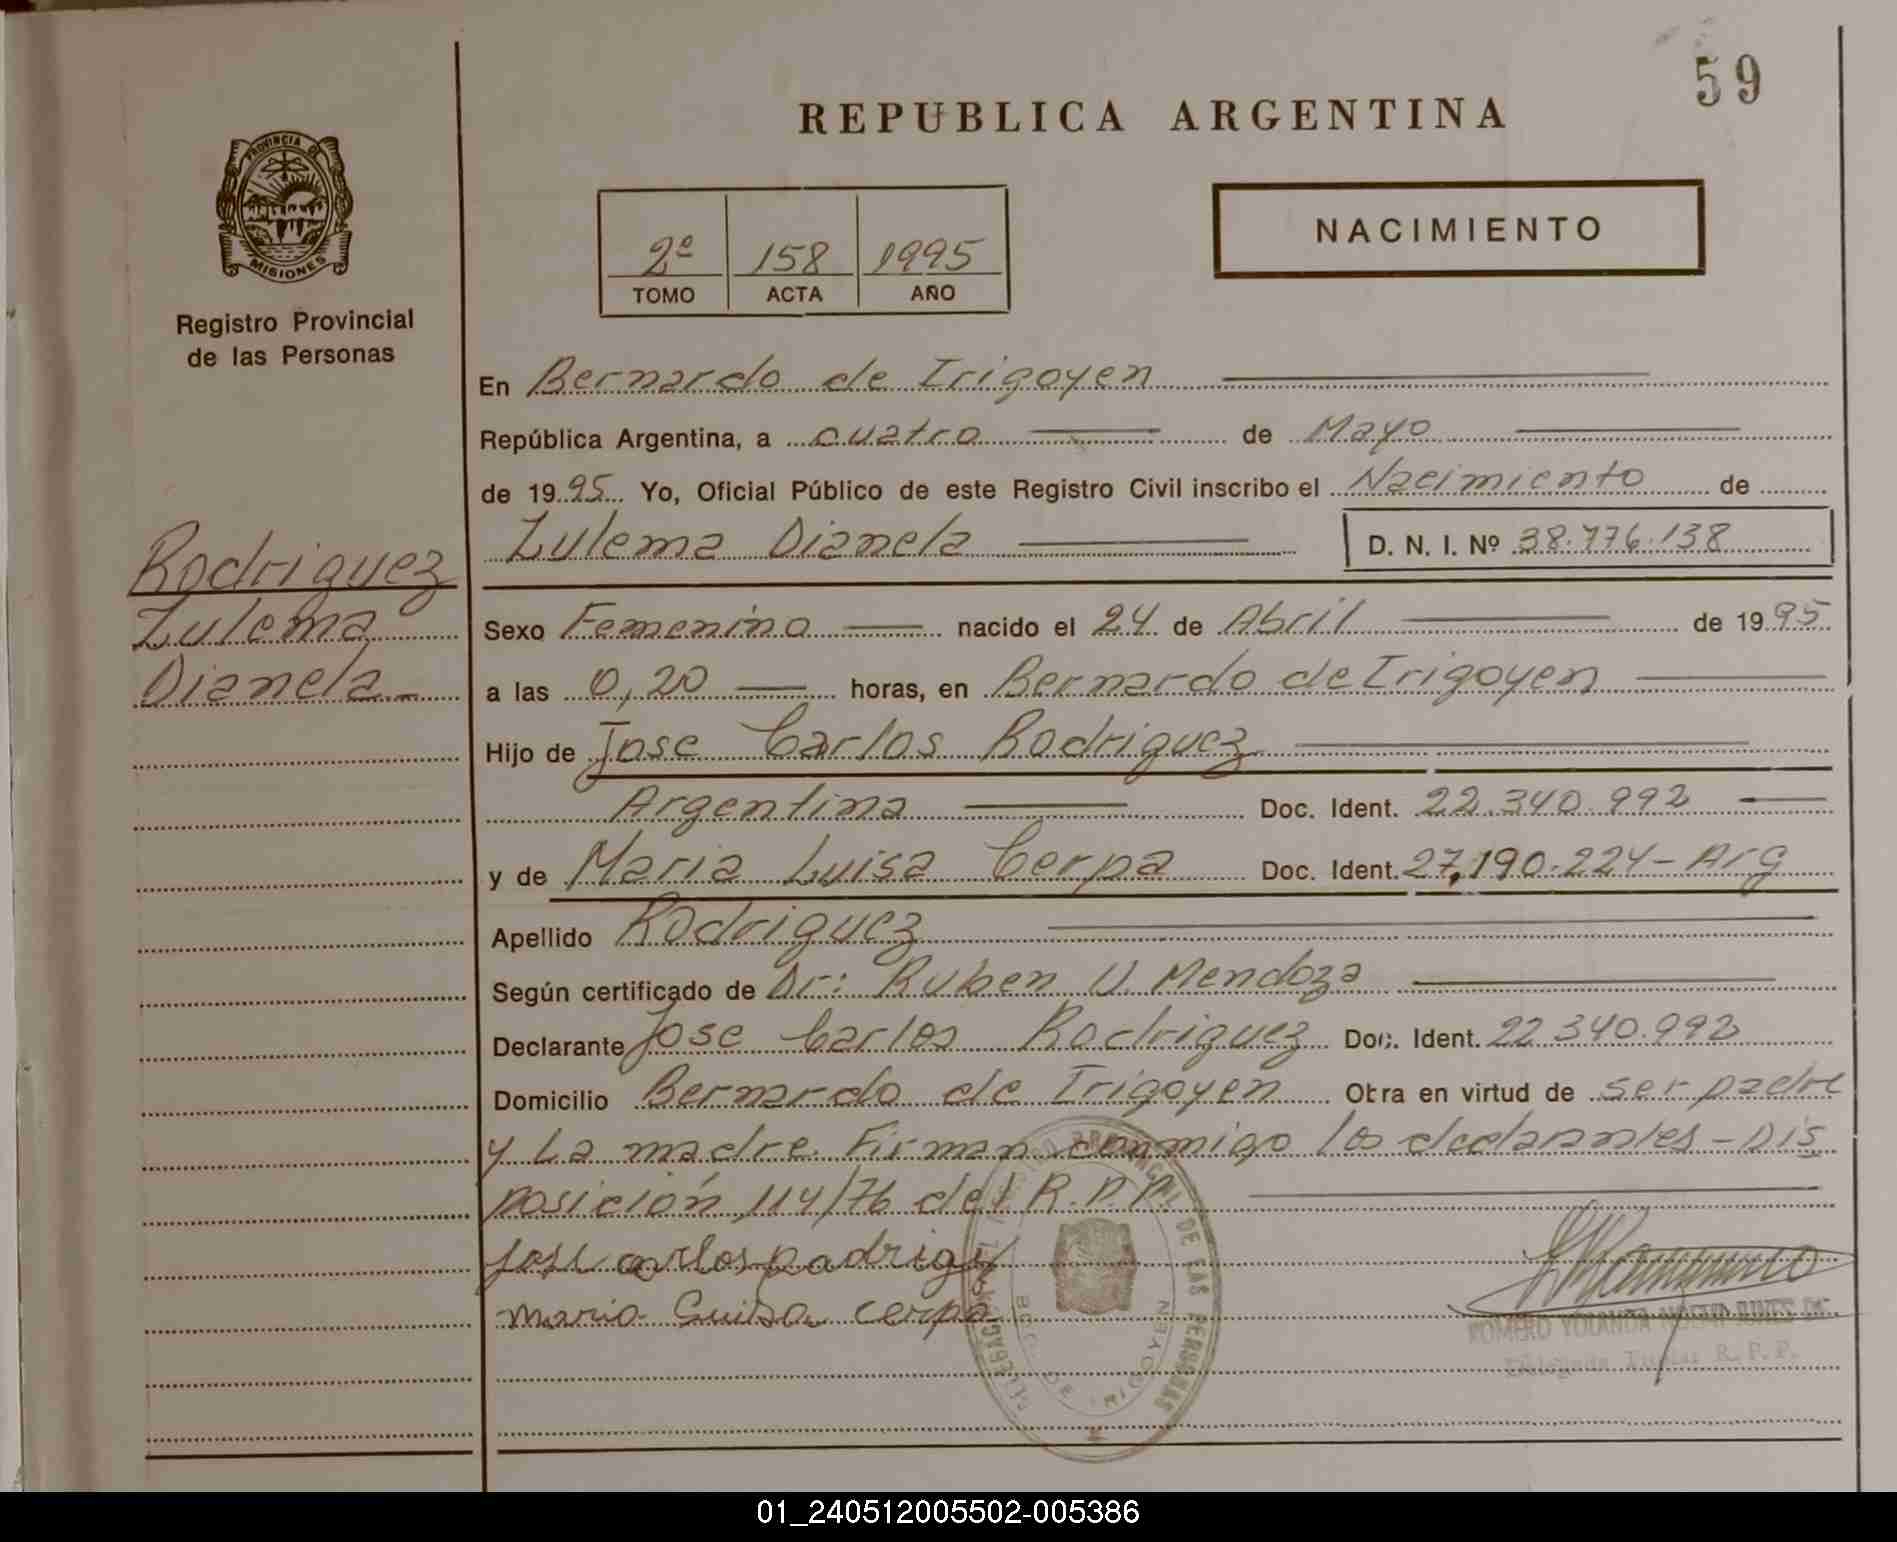 59
REPUBLICA ARGENTINA
PROVINCIA DE
MISIONES
Registro Provincial
de las Personas
2º 158 1995
TOMO ACTA AÑO
NACIMIENTO
En Bernardo de Irigoyen
República Argentina, a cuatro de Mayo
de 1995 Yo, Oficial Público de este Registro Civil inscribo el Nacimiento de
Zulema Dianela D. N. I. Nº 38.776.138
Rodriguez
Zulema
Dianela
Sexo Femenino nacido el 24 de Abril de 1995
a las 0,20 horas, en Bernardo de Irigoyen
Hijo de Jose Carlos Rodriguez
Argentina Doc. Ident. 22.340.992
y de Maria Luisa Cerpa Doc. Ident. 27.190.224 - Arg
Apellido Rodriguez
Según certificado de Dr: Ruben U. Mendoza
Declarante Jose Carlos Rodriguez Doc. Ident. 22.340.992
Domicilio Bernardo de Irigoyen Obra en virtud de ser padre
y La madre. Firman conmigo los declarantes - Dis
posición 114/76 del R.P.P.
Jose carlos
maria Luisa cerpa
PROVINCIAL DE LAS PERSONAS
DE IRIGOYEN
ROMERO YOLANDA
R. P. P.
01_240512005502-005386